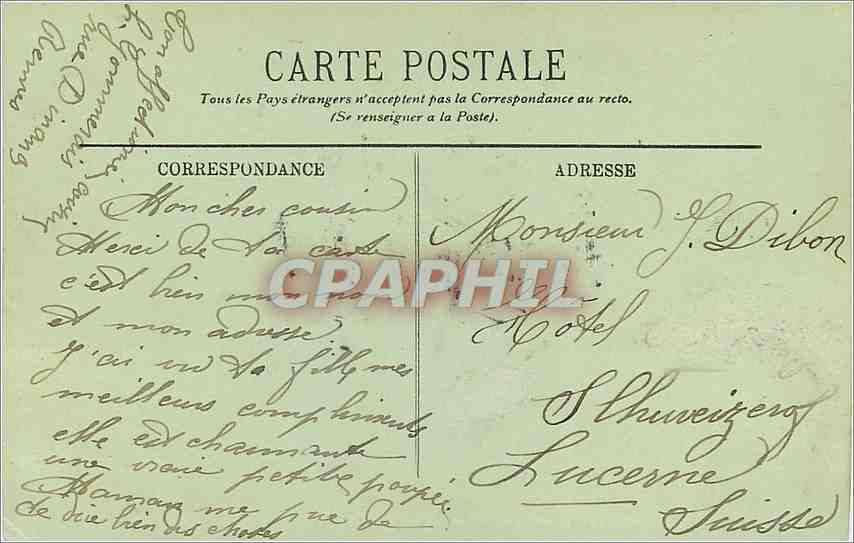 CARTE POSTALE
Tous les Pays étrangers n'acceptent pas la Correspondance au recto.
(Se renseigner a la Poste).
CORRESPONDANCE
Mon cher cousin
Merci de ta carte
c'est bien mon nom
et mon adresse
J'ai vu ta fille mes
meilleurs compliments
elle est charmante
une vraie petite poupée
Maman me prie de
te dire bien des choses
Ton affectionné cousin
rue Dinan
Rennes
ADRESSE
Monsieur J. Dibon
Hôtel
Lucerne
Suisse
CPAPHIL